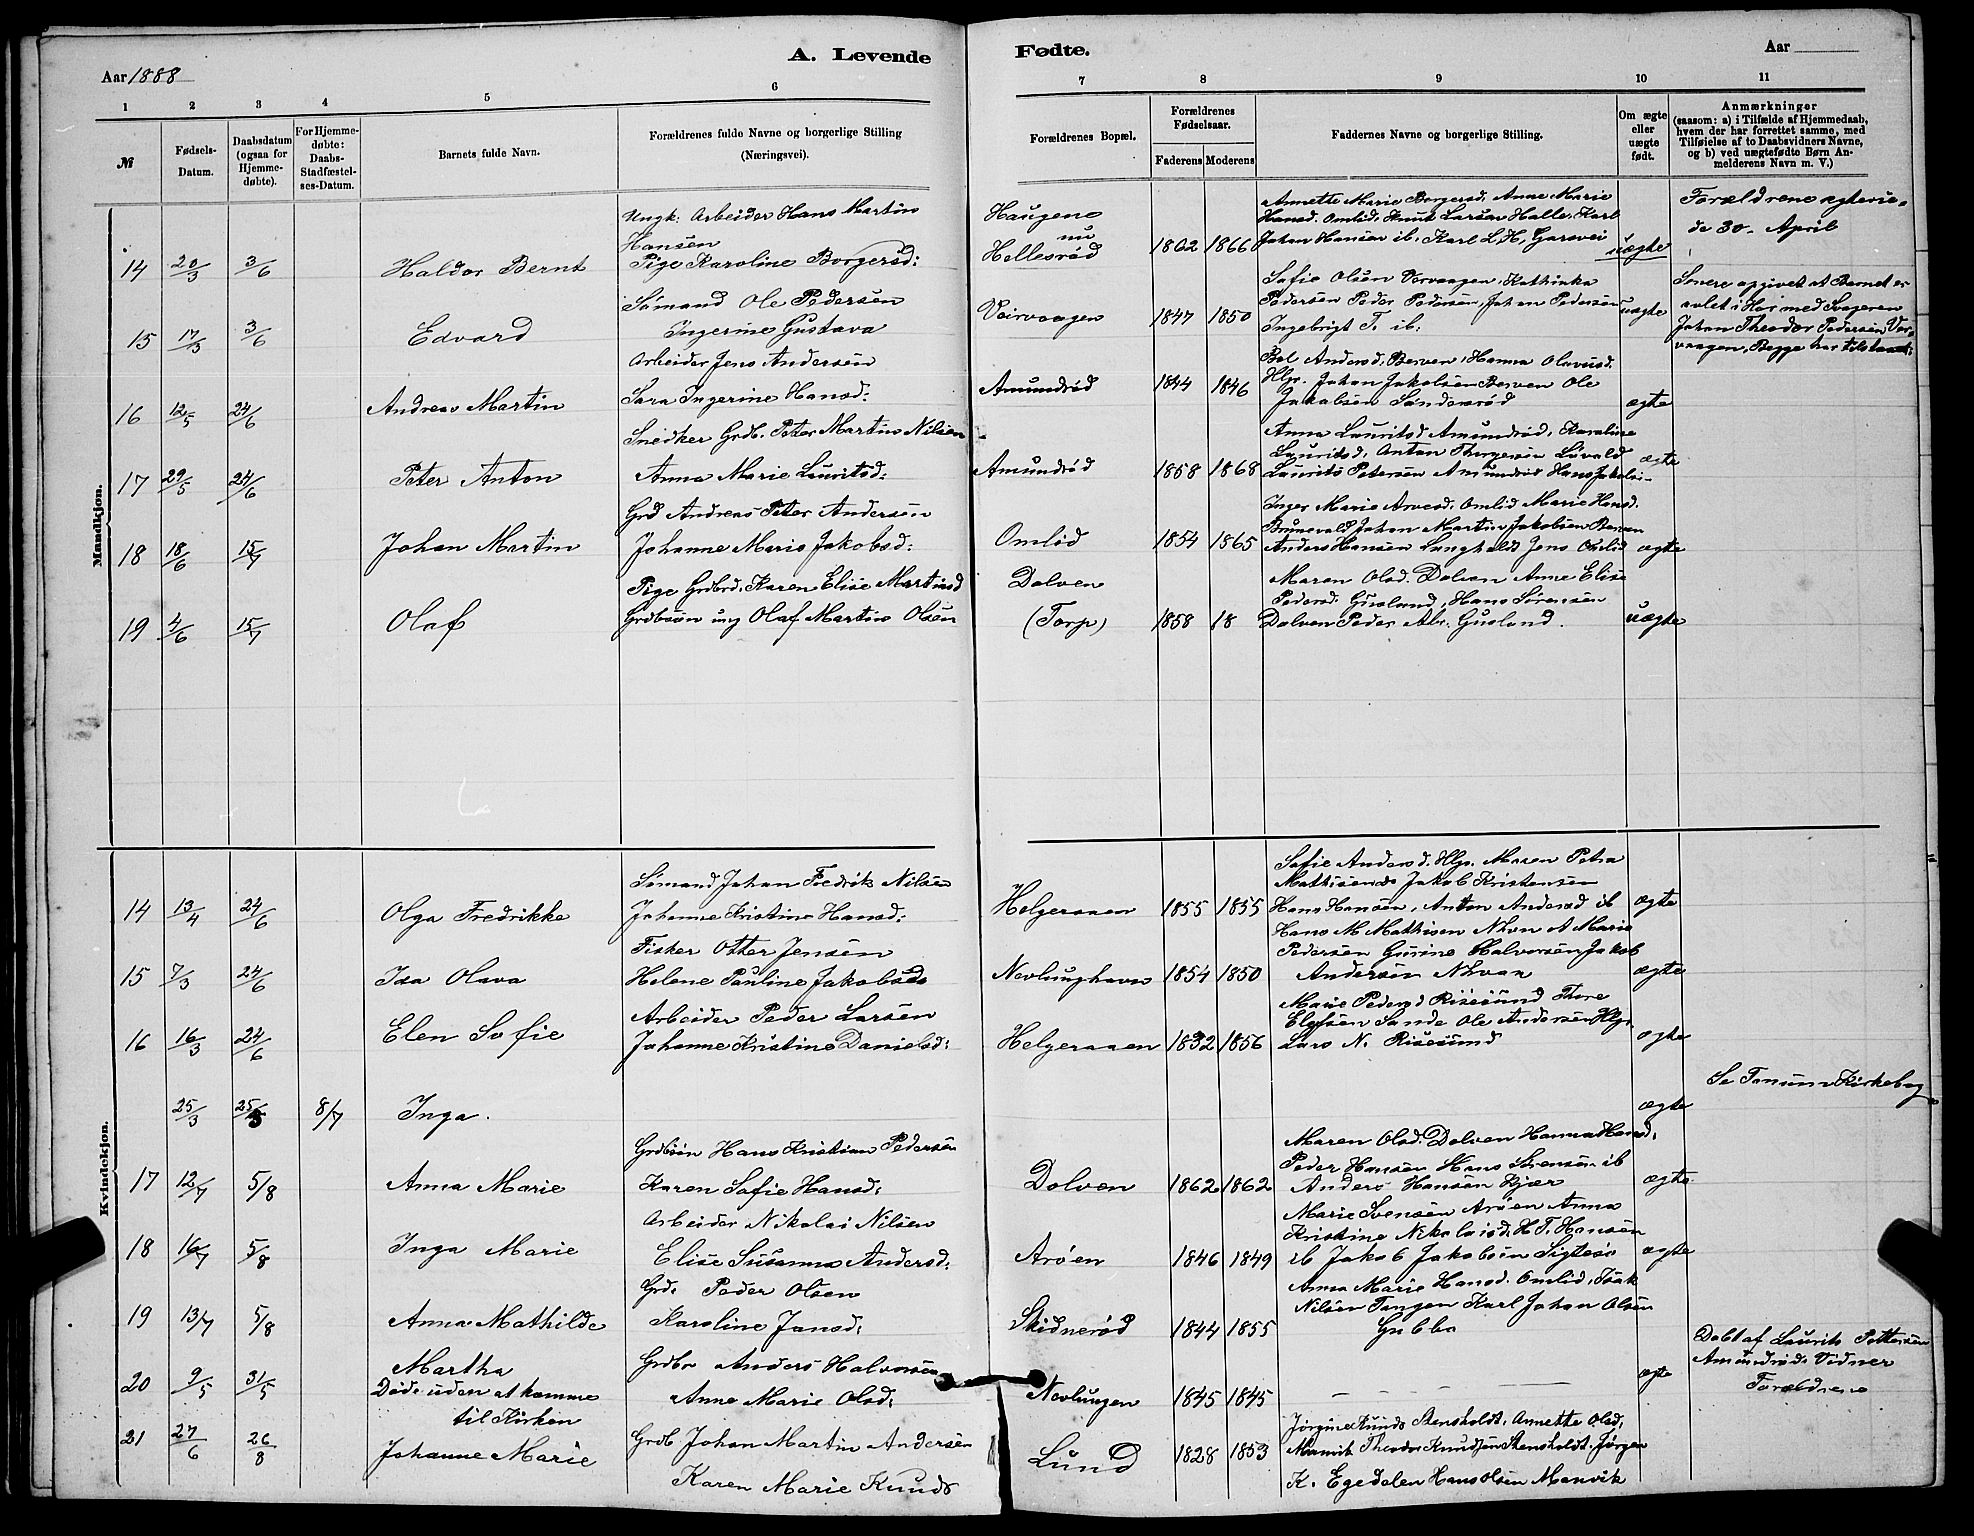 Aar 1888
A. Levende
Fødte.
Aar
1 2 3 4 5 6 7 8 9 10 11
№
Fødsels-Datum.
Daabsdatum (ogsaa for Hjemme-døbte).
For Hjemme-døbte: Daabs-Stadfæstel-ses-Datum.
Barnets fulde Navn.
Forældrenes fulde Navne og borgerlige Stilling (Næringsvei).
Forældrenes Bopæl.
Forældrenes Fødselsaar.
Faderens Moderens
Faddernes Navne og borgerlige Stilling.
Om ægte eller uægte født.
Anmærkninger (saasom: a) i Tilfælde af Hjemmedaab, hvem der har forrettet samme, med Tilføielse af to Daabsvidners Navne, og b) ved uægtefødte Børn An-melderens Navn m. V.)
Mandkjøn.
14 20/3 3/6 Haldor Bernt
Ungk: Arbeider Hans Martin
Hansen
Pige Karoline Borgersd:
Haugene
nu
Hellesrød
1862 1866
Annette Marie Borgersd, Anne Marie
Hansd. Omlid, Knut Larsen Halle, Karl
Johan Hansen ib, Karl L. H. Garsvei
uægte
Forældrene ægtevie-
de 30. April
15 17/3 3/6 Edvard
Sømand Ole Pedersen
Ingerine Gustava
Veirvaagen
1847 1850
Sofie Olsen Vervaagen, Kathinka
Pedersen Peder Pedersen, Johan Pedersen
Ingebrigt T. ib:
uægte
Senere opgivet at Barnet er
avlet i Hor med Svogeren
Johan Theodor Pedersen Ver-
vaagen, Begge har tilstaaet:
16 12/5 24/6 Andreas Martin
Arbeider Jens Andersen
Sara Ingerine Hansd:
Amundrød
1844 1846
Bol Andersd, Berven, Hanna Olavusd.
Hlgr. Johan Jakobsen Berven Ole
Jakobsen Søndersrød
ægte
17 29/5 24/6 Peter Anton
Snedker Grdb. Peter Martin Nilsen
Anna Marie Lauritsd:
Amundrød
1858 1868
Anna Lauritsd Amundrød, Karoline
Lauritsd, Anton Thorgersen Løvald
Laurits Petersen Amundrød Hans Jakobs-
ægte
18 18/6 15/7 Johan Martin
Grd Andreas Peter Andersen
Johanne Marie Jakobsd:
Omlid
1854 1865
Inger Marie Arvesd. Omlid Marie Hansd.
Brunevald Johan Martin Jakobsen Berven
Anders Hansen Langholdt Jens Omlid
ægte
19 4/6 15/7 Olaf
Pige Grdbrd. Karen Elise Martinsd
Grdbsøn ung Olaf Martin Olsen
Dolven
(Torp)
1858 18
Maren Olsd. Dolven Anne Elise
Pedersd. Gusland, Hans Sørensen
Dolven Peder Abr. Gusland.
uægte
Kvindekjøn.
14 13/4 24/6 Olga Fredrikke
Sømand Johan Fredrik Nilsen
Johanne Kristine Hansd:
Helgeraaen
1855 1855
Sofie Andersd. Hlgr. Maren Petra
Mathisensd. Jakob Kristensen
Hans Hansen, Anton Andersd ib
ægte
15 7/3 24/6 Isa Olava
Fisker Otter Jensen
Helene Pauline Jakobsd
Nevlunghavn
1854 1850
Hans M. Mathisen Nhvn A Marie
Pedersen Gurine Halvorsen Jakob
Andersen Nhvn
ægte
16 16/3 24/6 Elen Sofie
Arbeider Peder Larsen
Johanne Kristine Danielsd:
Helgeraaen
1832 1856
Marie Pedersd Risesund Thore
Elefsen Sande Ole Andersen Hlgr.
Lars N. Risesund
ægte
25/3 25/3 8/7 Inga.
ægte
Se Tanum Kirkebog
17 12/7 5/8 Anna Marie
Grdbsøn Hans Kristian Pedersen
Karen Sofie Hansd:
Dolven
1862 1862
Maren Olsd. Dolven Hanna Hansd,
Peder Hansen Hans Sørensen ib
Anders Hansen Bjær
ægte
18 16/7 5/8 Inga Marie
Arbeider Nikolai Nilsen
Elise Susanna Andersd:
Arøen
1846 1849
Marie Svensen Arøen Anna
Kristine Nikolaisd, H. T. Hansen
ib Jakob Jakobsen Sigtesø
ægte
19 13/7 5/8 Anna Mathilde
Grd. Peder Olsen
Karoline Jansd:
Skidnerød
1844 1855
Anna Marie Hansd. Omlid, Isak
Nilsen Tangen Karl Johan Olsen
Gubba
20 9/5 31/5 Martha
Døde uden at komme
til Kirken
Grdbr Anders Halvorsen
Anne Marie Olsd:
Nevlungen
1845 1845
ægte
Døbt af Laurits Pettersen
Amundrød, Vidner
Forældrene
21 27/6 26/8 Johanne Marie
Grdb Johan Martin Andersen
Karen Marie Knuds
Lund
1828 1853
Jørgine Knuds Stensholdt, Annette Olsd,
Manvik Theodor Knudsen Stensholdt. Jørgen
K. Egedalen Hans Olsen Manvik